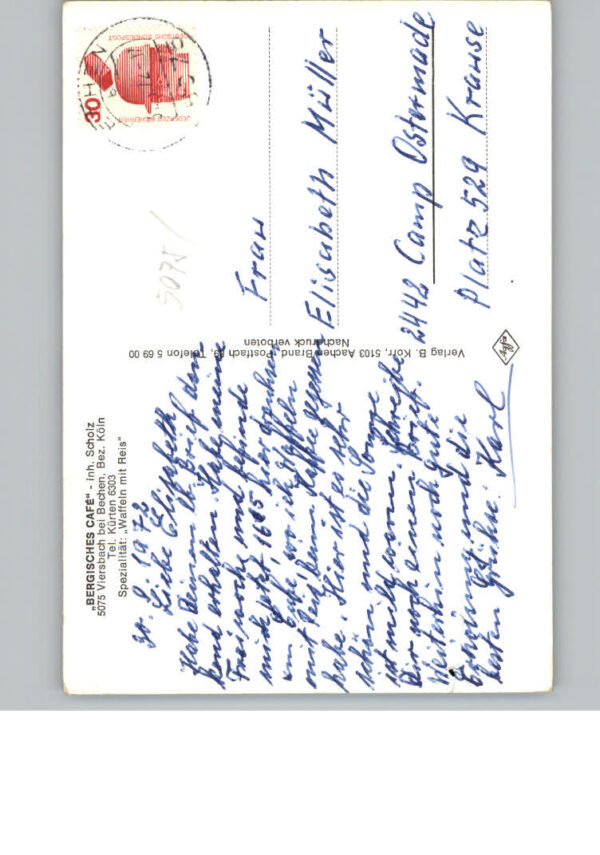 „BERGISCHES CAFÉ" - Inh. Scholz
5075 Viersbach bei Bechen, Bez. Köln
Tel. Kürten 6303
Spezialität: „Waffeln mit Reis"
1972
Liebe Elisabeth
Habe Deinen lb. Brief dankend
erhalten. Habe meine
und befinde
mich jetzt 1615 hier
wo ich Waffeln
mit Reis beim Kaffee gegessen
habe. Hier ist es sehr
schön und die Sonne
ist mild warm. Schreibe
Dir noch einen Brief.
Weiterhin noch gute
Erholung und die
besten Grüße. Karl
Verlag B. Korr, 5103 Aachen-Brand, Postfach 39, Telefon 5 69 00
Nachdruck verboten
Agfa
5075
30
DEUTSCHE BUNDESPOST
JEDERZEIT SICHERHEIT
Frau
Elisabeth Müller
2442 Camp Ostermade
Platz 529 Krause